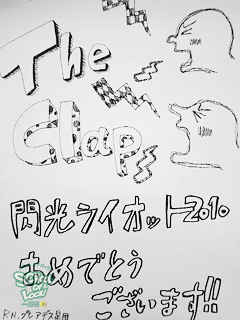 The
Clap
閃光ライオット2010
おめでとう
ございます!!
R.N.プレアデス星団